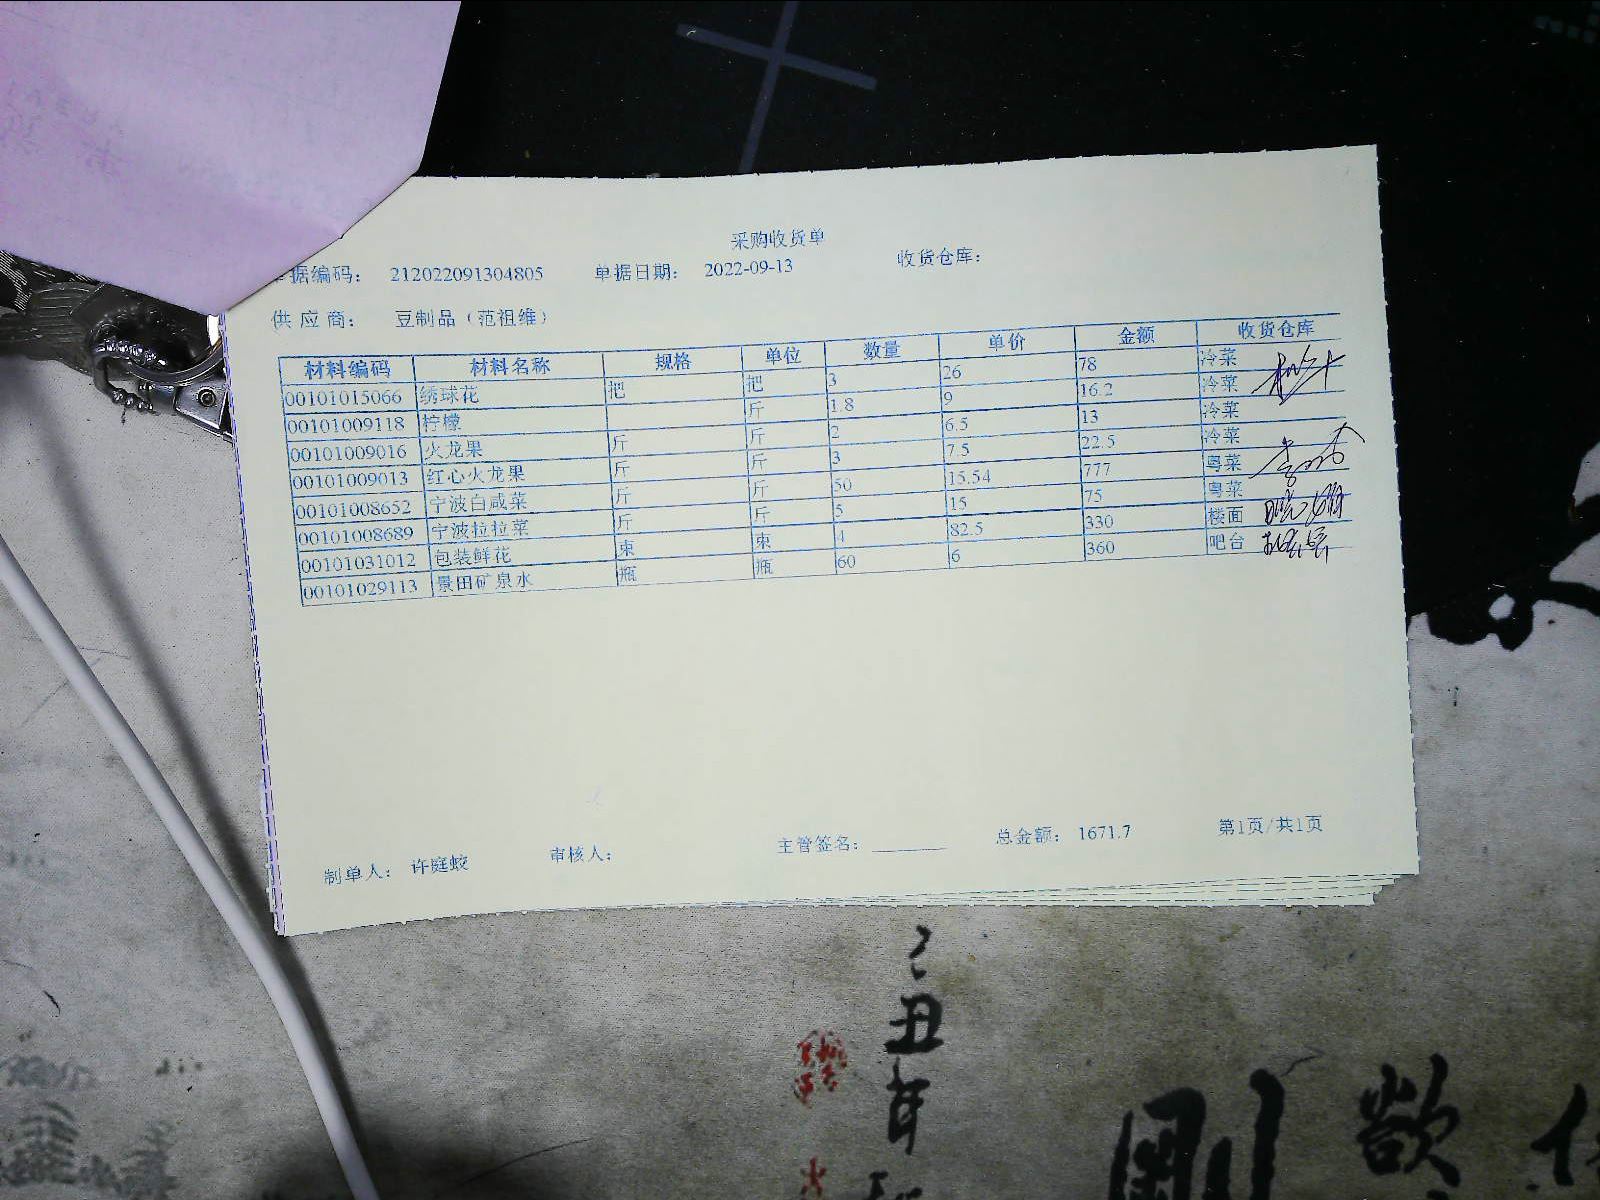 采购收货单
据编码： 212022091304805 单据日期： 2022-09-13 收货仓库：
供应商： 豆制品（范祖维）
材料编码 材料名称 规格 单位 数量 单价 金额 收货仓库
00101015066 绣球花 把 把 3 26 78 冷菜
00101009118 柠檬 斤 1.8 9 16.2 冷菜
00101009016 火龙果 斤 斤 2 6.5 13 冷菜
00101009013 红心火龙果 斤 斤 3 7.5 22.5 冷菜
00101008652 宁波白咸菜 斤 斤 50 15.54 777 粤菜
00101008689 宁波拉拉菜 斤 斤 5 15 75 粤菜
00101031012 包装鲜花 束 束 4 82.5 330 楼面
00101029113 景田矿泉水 瓶 瓶 60 6 360 吧台
制单人： 许庭蛟 审核人： 主管签名： 总金额： 1671.7 第1页/共1页
丑年
刚
欲